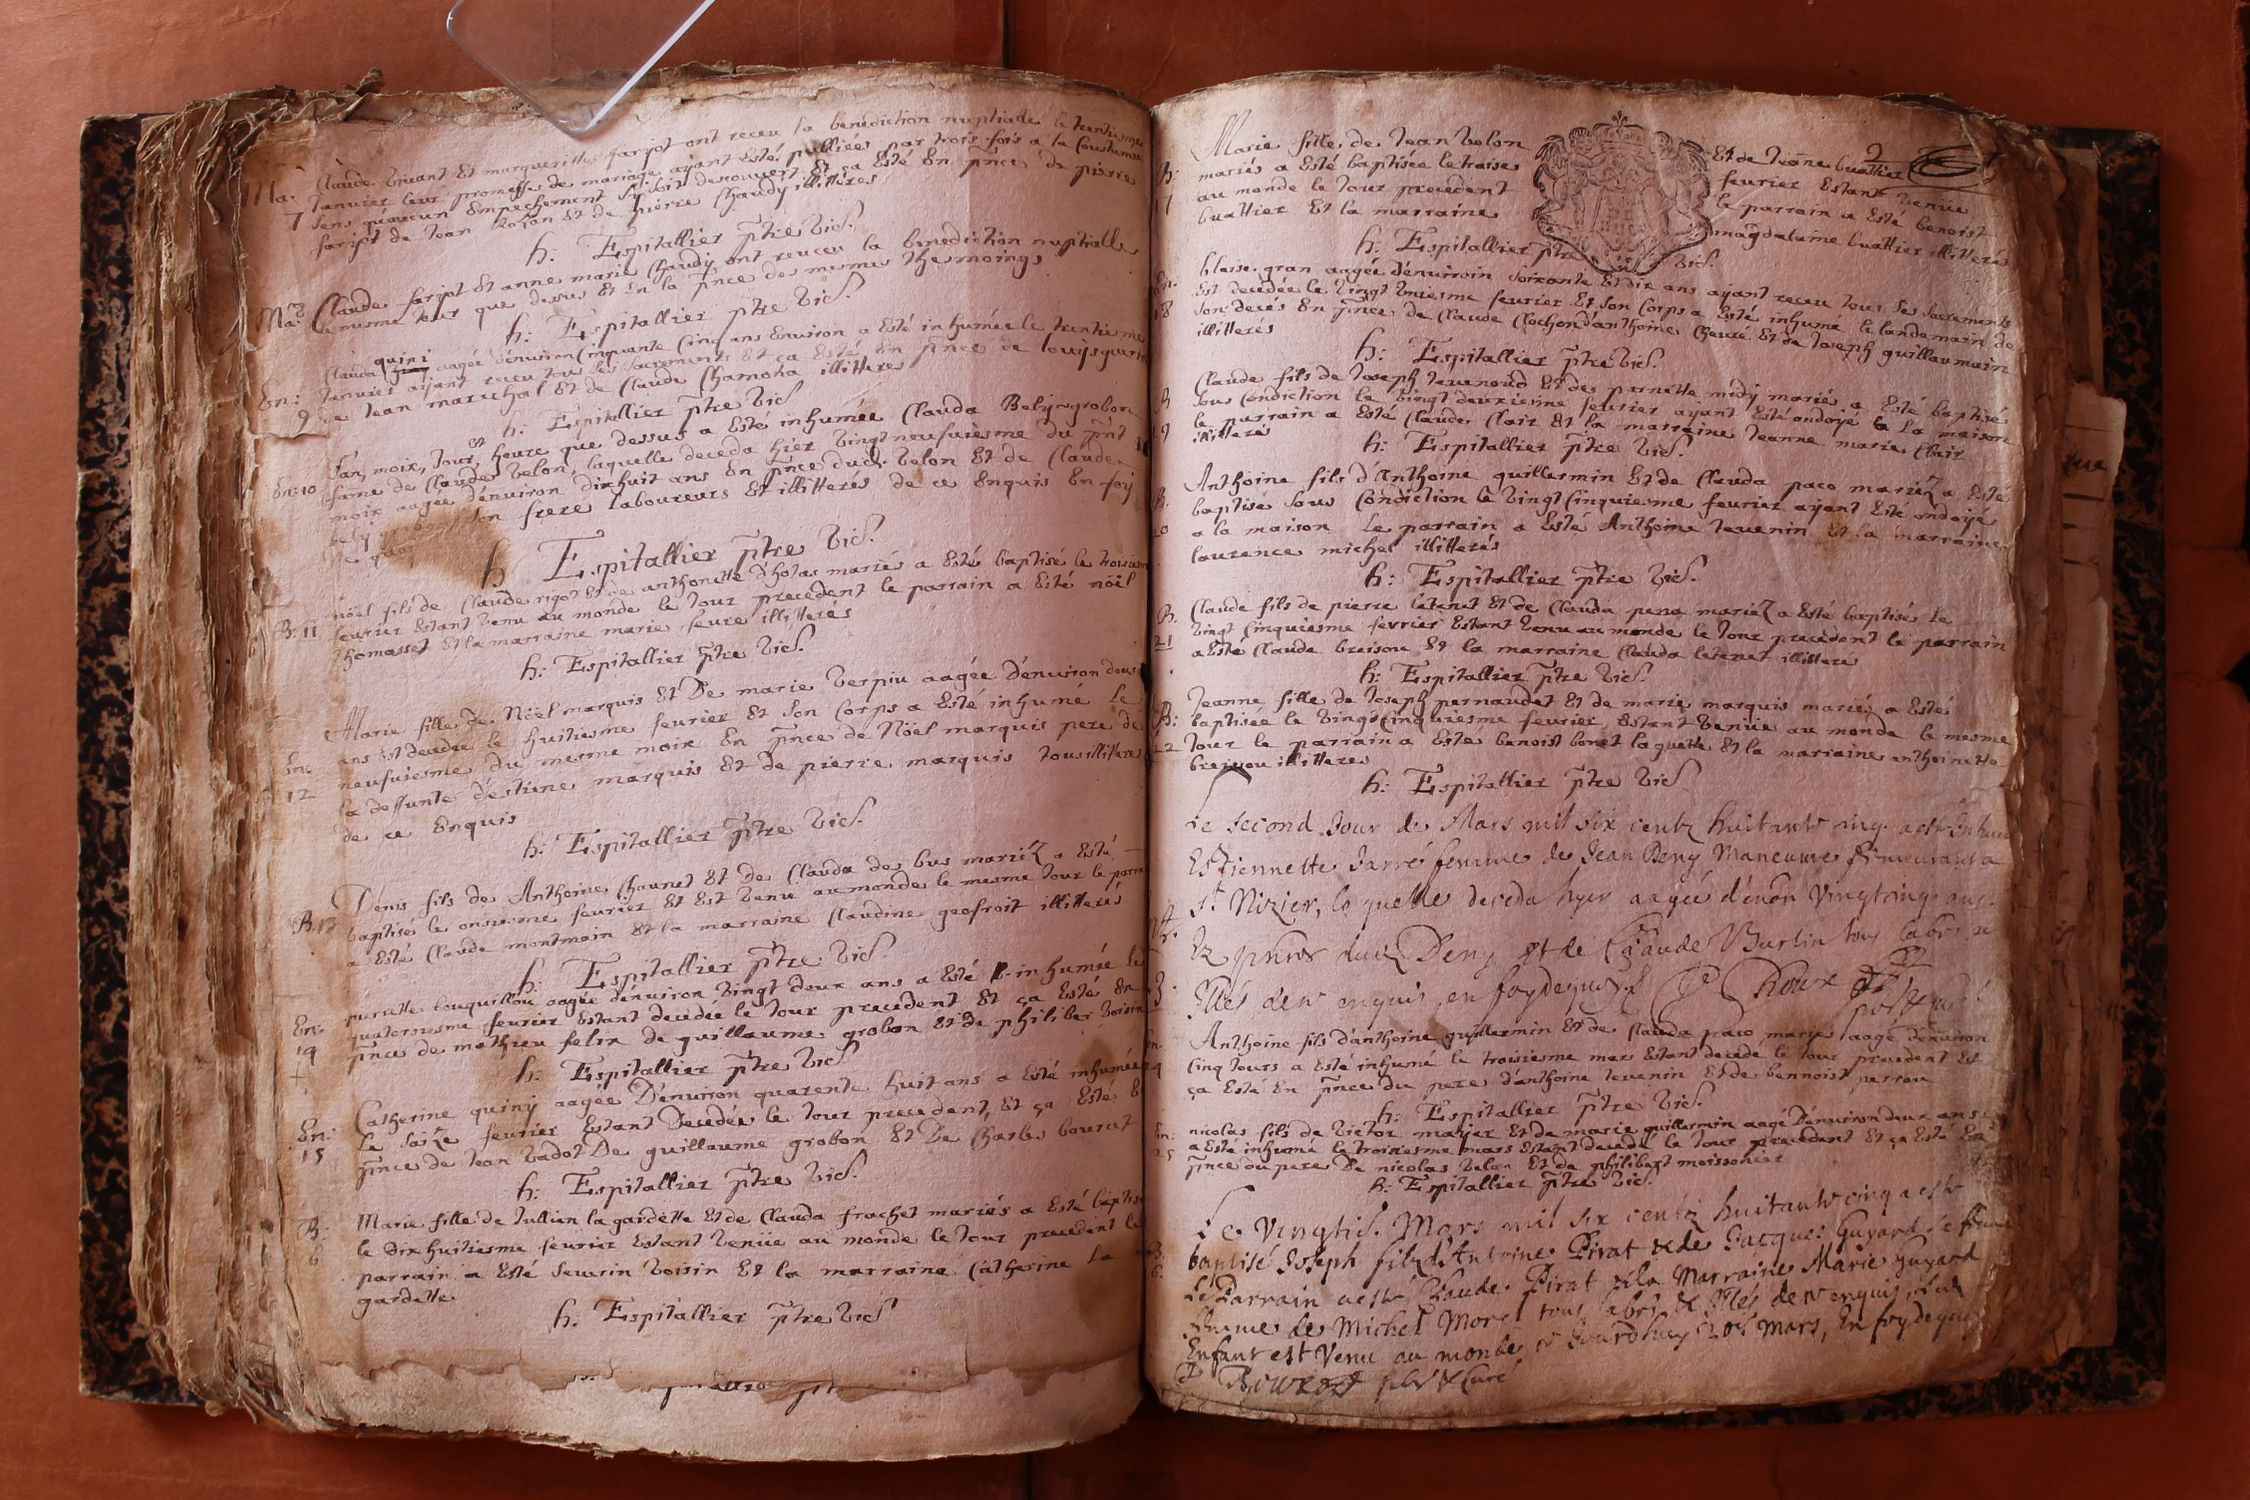 Claude vivant Et margueritte farjot ont receu la benediction nuptialle le trentiesme
Ma: Janvier leur promesse de mariage ayant Esté publiées par trois fois a la Coustume
7 sens qu'aucun Empechement sy soit descouvert Et ça Esté En pñce de pierre
farjot de Jean Et de pierre Chaudy illitterés
h: Espitallier ptre vic.
Ma: 8 Claude farjot Et anne marie Chaudy ont receu la benediction nuptialle
le mesme Jour que dessus Et En la pñce des mesmes thesmoings
h: Espitallier ptre vic.
quini
Clauda aagée d'environ Cinquante Cinq ans Environ a Esté inhumée le trentiesme
En: Janvier aÿant receu tou les sacrements Et ça Esté En pñce de
9 de Jean marechal Et de Claude Chamona illitteres
h: Espitallier ptre vic
L'an, moix, Jour, Et heure que dessus a Esté inhumée Clauda Bely grobon
En: 10 fame de Claude velon, laquelle deceda hier vingtneufuiesme du pñt
moix aagée d'environ dixhuit ans En pñce dud. velon Et de Claude
bely son frere laboureurs Et illitterés de ce Enquis En foÿ
h Espitallier ptre vic.
nöel fils de Claude rigot Et de anthoinette mariés a Esté baptisé le troisiesme
B. 11 fevrier Estant venu au monde le Jour precedent le parrain a Esté nöel
thomasset Et la marraine marie feure illitterés
h: Espitallier ptre vic.
Marie fille de Nöel marquis Et De marie verpiu aagée D'environ deux
En: ans Est decedée le huitiesme fevrier Et son Corps a Esté inhumé le
12 neufuiesme du mesme moix En pñce de Nöel marquis pere de
la deffunte d'estiene marquis Et de pierre marquis tous illitteres
de ce Enquis
h: Espitallier ptre vic.
Denis fils de Anthoine Chaunet Et de Clauda de bus mariéz a Esté
B. 13 baptisé le onsiesme fevrier Et Est venu au monde le mesme Jour le parrain
a Esté Claude montmain Et la marraine Claudine geofroit illitterés
h: Espitallier ptre vic.
pierrette bouquillou aagée d'environ vingt deux ans a Esté inhumée le
En: quatorsiesme fevrier Estant decedée le Jour precedent Et ça Esté En
14 pñce de mathieu felix de guillaume grobon Et de philiber voisin
h: Espitallier ptre vic
Catherine quinÿ aagée D'environ quarente huit ans a Esté inhumée
En: Le saize fevrier Estant Decedée le Jour precedent, Et ça Esté E
15 pñce de Jean vadot De guillaume grobon Et De Charles bourcet
h: Espitallier ptre vic.
B: Marie fille de Jullien la gardette Et de Clauda frachet mariés a Esté baptisé
6 le dixhuitiesme fevrier Estant veniie au monde le Jour precedent le
parrain a Esté severin voisin Et la marraine Catherine La
gardette
h: Espitallier ptre vic
2
Marie fille de Jean velon Et de Jeane buattier
B: mariés a Esté baptisée le traise fevrier Estant venue
17 au monde le Jour precedent le parrain a Esté benoist
buattier Et la marraine magdaleine buattier illitterés
h: Espitallier ptre vic.
blaise gran aagée d'environ soixante Et dix ans ayant receu tous ses sacrements
En: Est decedée le vingt Uniesme fevrier Et son Corps a Esté inhumé le landemain de
18 son decés En pñce de Claude Clochon d'anthoine Cheuré Et de Joseph guillaumain
illitterés
h: Espitallier ptre vic.
Claude fils de Joseph Jeuenoud Et de pernette midy mariés a Esté baptisé
B sous Condiction le vingt deuxiesme fevrier ayant Esté ondoyé a La maison
19 le parrain a Esté Claude Clair Et la marraine Jeanne marie Clair
illitteré
h: Espitallier ptre vic.
Anthoine fils d'Anthoine guillermin Et de Clauda paco mariéz a Esté
B. baptisé sous Condiction le vingt Cinquiesme fevrier ayant Esté ondoyé
20 a la maison le parrain a Esté Anthoine Jeuenin Et la marraine
laurence michel illitterés
h: Espitallier ptre vic.
B. Claude fils de pierre Letenet Et de Clauda pera mariéz a Esté baptisé le
21 vingt Cinquiesme fevrier Estant venu au monde le Jour precedent le parrain
a Esté Claude breison Et la marraine Clauda letenet illitteré
h: Espitallier ptre vic.
Jeanne fille de Joseph pernaudet Et de marie marquis mariés a Esté
B: baptisée le vingtCinquiesme fevrier, Estant veniie au monde le mesme
22 Jour le parrain a Esté benoist bonet laguette Et la marraine anthoinette
breizou illitterés
h: Espitallier ptre vic.
Le second Jour de Mars mil six centz huitante cinq a esté Inhumée
Estiennette Jarré femme de Jean Deny Maneuvre demeurant a
St. Nizier, laquelle deceda hyer aagée d'enon vingtcinq ans.
Ez pñces dud. Deny et de Claude Burlin tous labrs
Jllés de ce enquis, en foy de quoy
Anthoine fils d'anthoine guillermin Et de Clauda paco maries aagé d'environ
Cinq Jours a Esté inhumé le troisiesme mars Estant decedé le Jour precedent Et
ça Esté En pñce du pere d'anthoine Jeuenin Et de bennoist perrou
h: Espitallier ptre vic.
En: nicolas fils de victor mayer Et de marie guillermin aagé D'environ deux ans
25 a Esté inhumé le troisiesme mars Estant decedé le Jour precedant Et ça Esté En
pñce du pere De nicolas velon Et de philibert moissonier
h: Espitallier ptre vic.
Le Vingtie. Mars mil six centz huitante cinq a esté
baptisé Joseph filz d'Antoine Pirat & de Jacque: Guyard sa feme
Le Parrain a esté Claude Pirat & la Marraine Marie guyard
femme de Michel Morel tous labrs & Jllés de ce enquis, Led.
Enfant est Venu au monde ce Jourdhuy 20e Mars, En foy de quoy